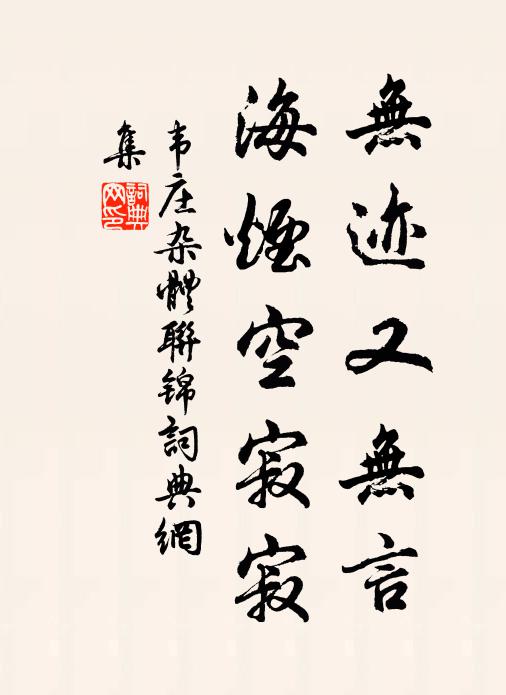 無迹又無言
海煙空寂寂
韦庄杂體聯錦詞典網
集
詞典网印